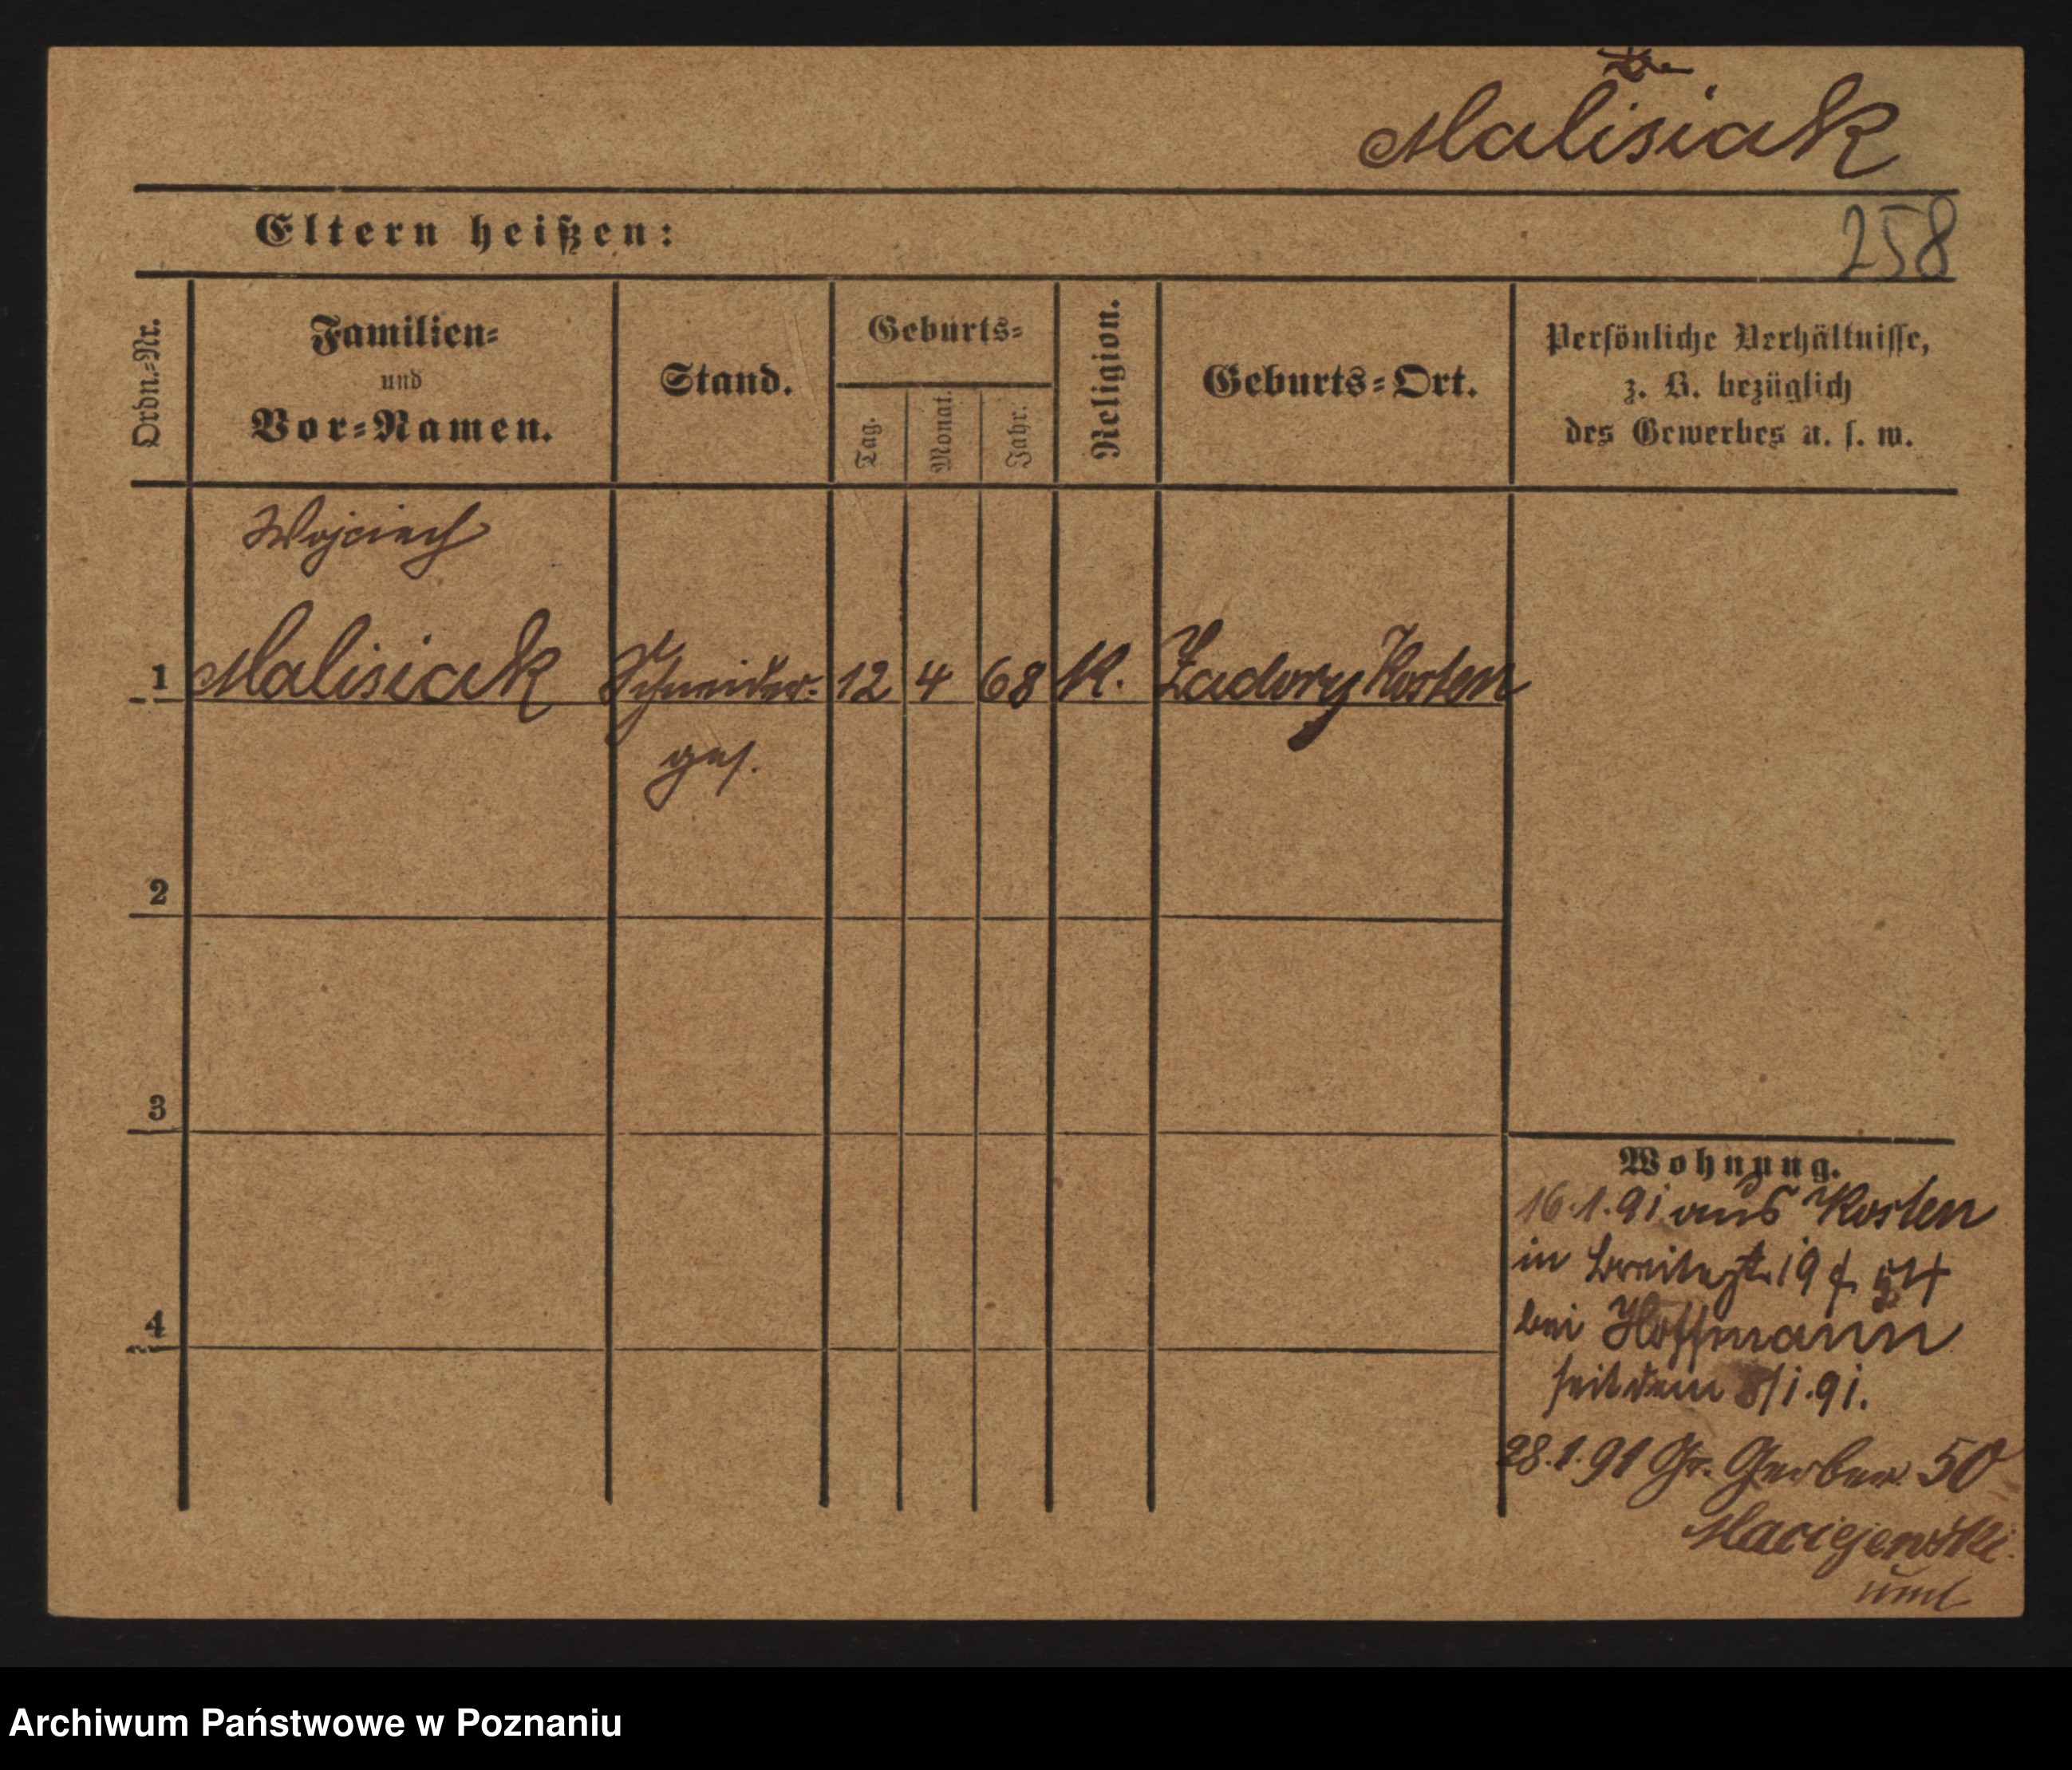 Malisiak
258
Eltern heißen:
Ordn.-Nr.
Familien-
und
Vor-Namen.
Stand.
Geburts-
Tag.
Monat.
Jahr.
Religion.
Geburts-Ort.
Persönliche Verhältnisse,
z. B. bezüglich
des Gewerbes u. s. w.
Wojciech
1 Malisiak Schneider- 12 4 68 K. Zadory Kosten
ges.
2
3
4
Wohnung.
16.1.91 aus Kosten
in Breitestr. 19
bei Hoffmann
seit dem 8/1.91.
28.1.91 Gr. Gerber 50
Maciejewski
Archiwum Państwowe w Poznaniu